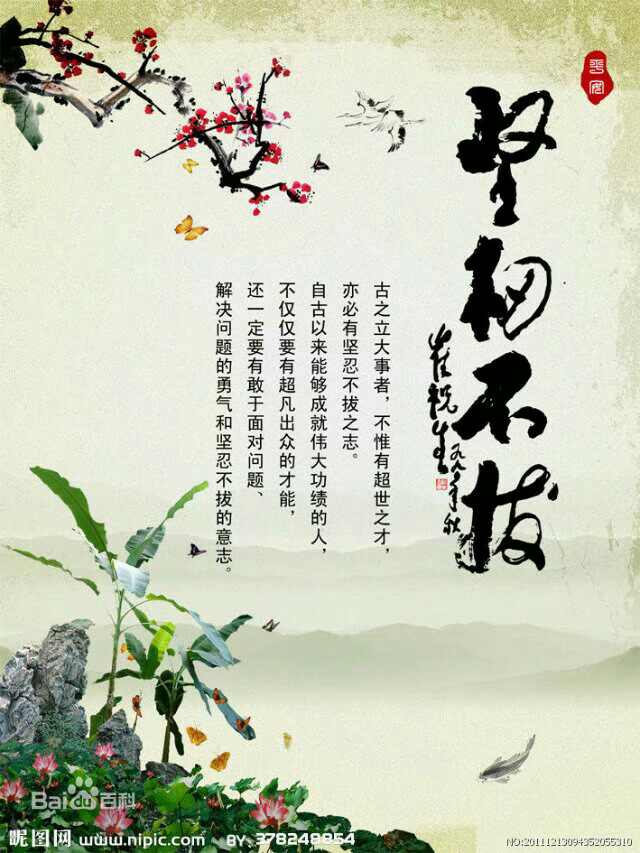 坚韧不拔
崔祝生
九八年秋
古之立大事者，不惟有超世之才，
亦必有坚忍不拔之志。
自古以来能够成就伟大功绩的人，
不仅仅要有超凡出众的才能，
还一定要有敢于面对问题、
解决问题的勇气和坚忍不拔的意志。
Baidu百科
昵图网 www.nipic.com BY: 378248855
NO:20111213094352055310